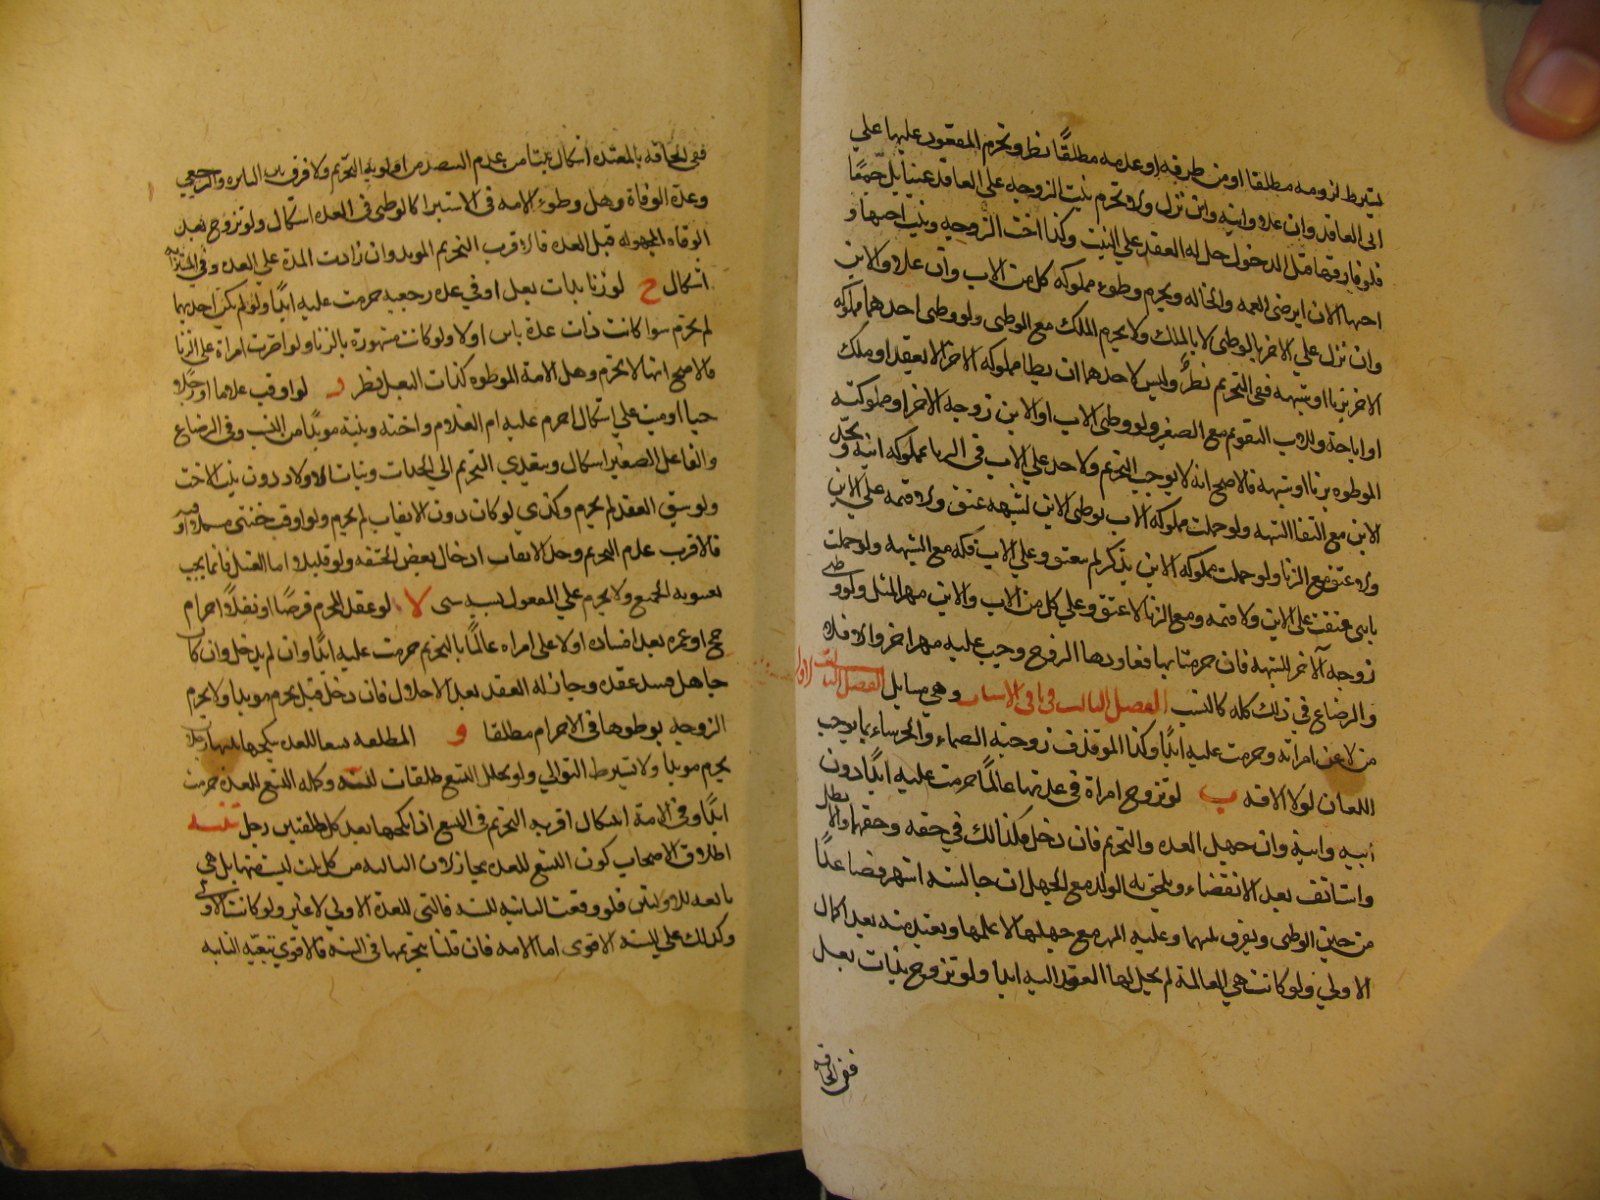 يشترط لزومه مطلقا او من طرفه او عدمه مطلقًا نظر وتحرم المعقود عليها علي
الي العاقد وان علا وابنه وان نزل ولا تحرم بنت الزوجه علي العاقد عينا بل جمعًا
فلو فارقها قبل الدخول حل له العقد علي البنت وكذا اخت الزوجه وبنت اختها و
اخيها الا ان ترضي العمه والخاله ويحرم وطوء مملوكه كل من الاب وان علا والابن
وان نزل علي الاخر بالوطي لا بالملك ولا يحرم الملك مع الوطي ولو وطي احدهما مملوكه
الاخر بزنا او شبهه ففي التحريم نظرٌ وليس لاحدهما ان يطا مملوكه الاخر الا بعقد او ملك
او اباحة وللاب التقويم مع الصغير ولو وطي الاب او الابن زوجه الاخر او مملوكته
الموطوه بزنا او شبهه فالاصح انه لا يوجب التحريم ولا حد علي الاب في الزنا بمملوكه ابنه ويحد
الابن مع انتفا الشبهه ولو حملت مملوكه الاب بوطي الابن لشبهه عتق ولا قيمه علي الابن
ولا عتق مع الزنا ولو حملت مملوكه الابن بذكر لم ينعتق وعلي الاب فكه مع الشبهه ولو حملت
بانثي عتقت علي الابن ولا قيمه ومع الزنا لا عتق وعلي كل من الاب والابن مهر المثل ولو وطي
زوجه الاخر لشبهه فان حرمنا بها فعاودها الزوج وجب عليه مهر اخر والا فلا
والرضاع في ذلك كله كالنسب الفصل الثالث في باقي الاسباب وهي مسايل
من لاعن امراته وحرمت عليه ابدًا وكذا لو قذف زوجته الصماء والخرساء بما يوجب
اللعان لولا الافه ب لو تزوج امراة في عدتها عالمًا حرمت عليه ابدًا دون
ابيه وابنه وان جهل العده والتحريم فان دخل فكذالك في حقه وحقها والا بطل
واستانف بعد الانقضاء ويلحق به الولد مع الجهل ان جا لسته اشهر فصاعدًا
من حين الوطي ويفرق بينهما وعليه المهر مع جهلها لا علمها ويعتد منه بعد اكمال
الاولي ولو كانت هي العالمة لم يحل لها العود اليه ابدا ولو تزوج بذات بعل
ففي الحاقه
ففي الحاقه بالمعتده اشكال ينشا من عدم التنصيص ومن اولويه التحريم ولا فرق بين الباين والرجعي
وعدة الوفاة وهل وطوء الامه في الاستبرا كالوطي في العده اشكال ولو تزوج بعد
الوفاه المجهوله قبل العده فالاقرب التحريم الموبد وان زادت المدة علي العده وفي
اشكال ج لو زنا بذات بعل او في عده رجعيه حرمت عليه ابدًا ولو لم تكن احديهما
لم يحرم سوا كانت ذات عدة باين او لا ولو كانت مشهورة بالزنا ولو اصرت امراة علي الزنا
فالاصح انها لا تحرم وهل الامة الموطوه كذات البعل نظر د لو اوقب غلاما او رجلا
حيا او ميت علي اشكال حرم عليه ام الغلام واخته وبنته موبدًا من النسب وفي الرضاع
والفاعل الصغير اشكال ويتعدي التحريم الي الجدات وبنات الاولاد دون بنت الاخت
ولو سبق العقد لم يحرم وكذي لو كان دون الايقاب لم يحرم ولو اوقب خنثي مشكلا او
فالاقرب عدم التحريم وحد الايقاب ادخال بعض الحشفه ولو قليلا اما الغسل فانما يجب
بغيبوبه الجميع ولا يحرم علي المفعول بسببه شي لو عقد المحرم فرضًا او نفلًا احرام
حج او عمره بعد افساده اولا علي امراه عالمًا بالتحريم حرمت عليه ابدًا وان لم يدخل وان كان
جاهلا فسد عقده وجاز له العقد بعد الاحلال فان دخل قبل يحرم موبدا ولا يحرم
الزوجه بوطوها في الاحرام مطلقا و المطلقه تسعا للعده ينكحها بينها رجلان
يحرم موبدا ولا يشترط التوالي ولو تخلل التسع طلقات للسنه وكمله التسع للعده حرمت
ابدًا وفي الامة اشكال اقربه التحريم في التسع ان نكحها بعد كل طلقتين رجل تنبيه
اطلاق الاصحاب كون التسع للعده مجاز لان الثالثه من كل ثلث ليست منها بل هي
ما بعد للاوليتين فلو وقعت الثانيه للسنه فالتي للعدة الاولي لا غير ولو كانت الاولي
وكذلك علي للسنه الاقوي اما الامه فان قلنا بتحريمها في السته فالاقوي تبعيه الثانيه